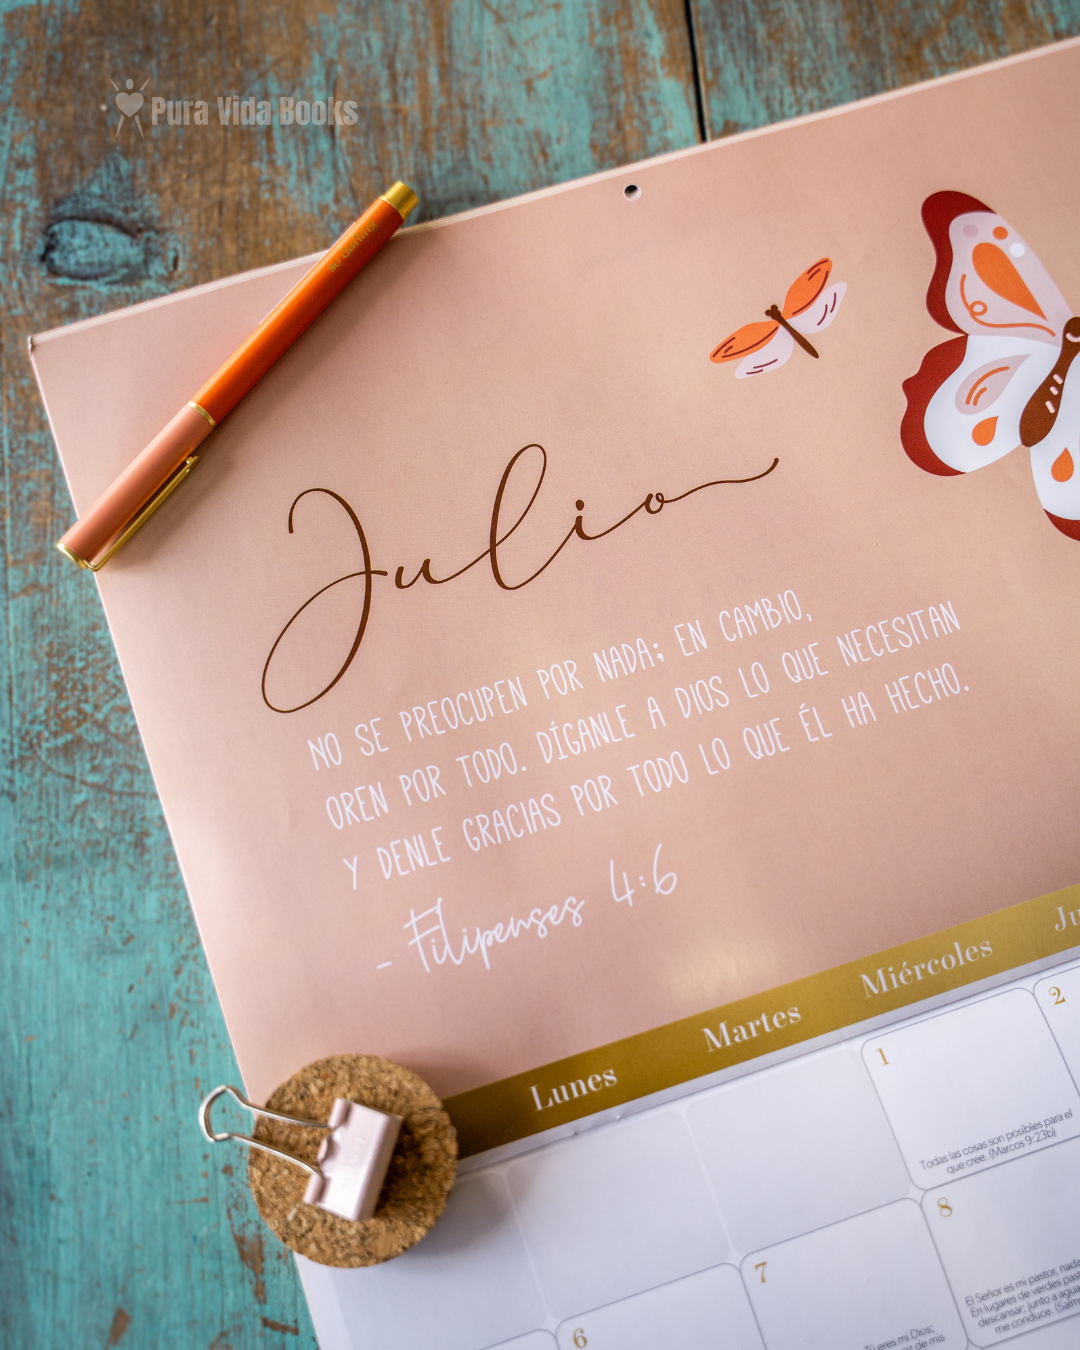 Pura Vida Books
so darling
Julio
NO SE PREOCUPEN POR NADA; EN CAMBIO,
OREN POR TODO. DÍGANLE A DIOS LO QUE NECESITAN
Y DENLE GRACIAS POR TODO LO QUE ÉL HA HECHO.
- Filipenses 4:6
Lunes Martes Miércoles Ju
1 2
Todas las cosas son posibles para el
que cree. (Marcos 9:23b)
6 7 8
El Señor es mi pastor, nada
En lugares de verdes past
descansar; junto a agua
me conduce. (Salm
eres mi Dios;
de mis